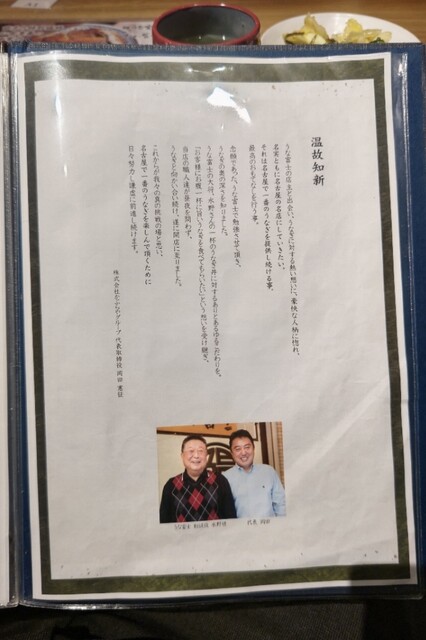 温故知新
うな富士の店主と出会い、うなぎに対する熱い想いに、豪快な人柄に惚れ、
名実ともに名古屋の名店にしていきたい。
それは名古屋で一番のうなぎを提供し続ける事、
最高のおもてなしを行う事。
念願であった、うな富士で勉強させて頂き、
うなぎの奥の深さを知りました。
うな富士の大将、水野さんの一杯のうなぎ丼に対するありとあらゆるこだわりを、
「お客様にお腹一杯に旨いうなぎを食べてもらいたい」という想いを受け継ぎ、
当店の職人達が昼夜を問わず、
うなぎと向かい合い続け、遂に開店に至りました。
これからが我々の真の挑戦の場と思い、
名古屋で一番のうなぎを楽しんで頂くために
日々努力し謙虚に前進し続けます。
代表取締役 岡田
うな富士
代表 岡田